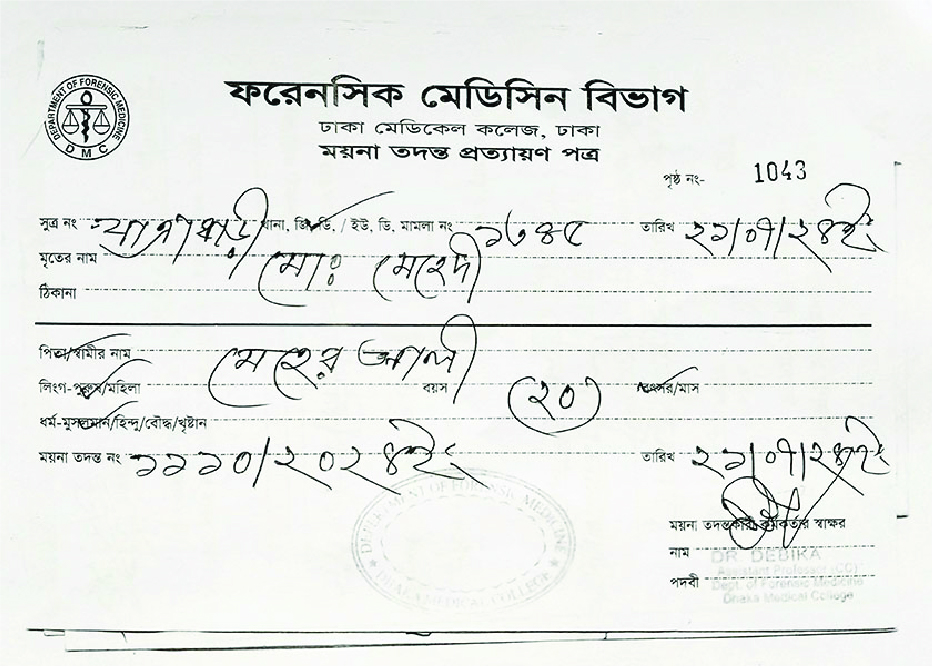 DEPARTMENT OF FORENSIC MEDICINE
DMC
ফরেনসিক মেডিসিন বিভাগ
ঢাকা মেডিকেল কলেজ, ঢাকা
ময়না তদন্ত প্রত্যায়ণ পত্র
পৃষ্ঠ নং- 1043
সুত্র নং যাত্রাবাড়ী থানা, জি, ডি, / ইউ, ডি, মামলা নং তারিখ ২১/০৭/২৪ইং
মৃতের নাম মোঃ মেহেদী
ঠিকানা
পিতা/স্বামীর নাম মেহের আলী
লিংগ-পুরুষ/মহিলা বয়স (২০) বৎসর/মাস
ধর্ম-মুসলমান/হিন্দু/বৌদ্ধ/খৃষ্টান
ময়না তদন্ত নং ১১১০/২০২৪ইং তারিখ ২১/০৭/২৪ইং
ময়না তদন্তকারী কর্মকর্তার স্বাক্ষর
নাম DR. DEBIKA
Assistant Professor (CC)
পদবী Dept. of Forensic Medicine
Dhaka Medical College
DEPARTMENT OF FORENSIC MEDICINE
DHAKA MEDICAL COLLEGE